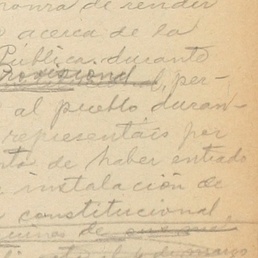 honra de rendir
acerca de la
Pública durante
Provisional, per-
al pueblo duran-
representáis por
de haber entrado
instalación de
constitucional,
de
el 4 de marzo